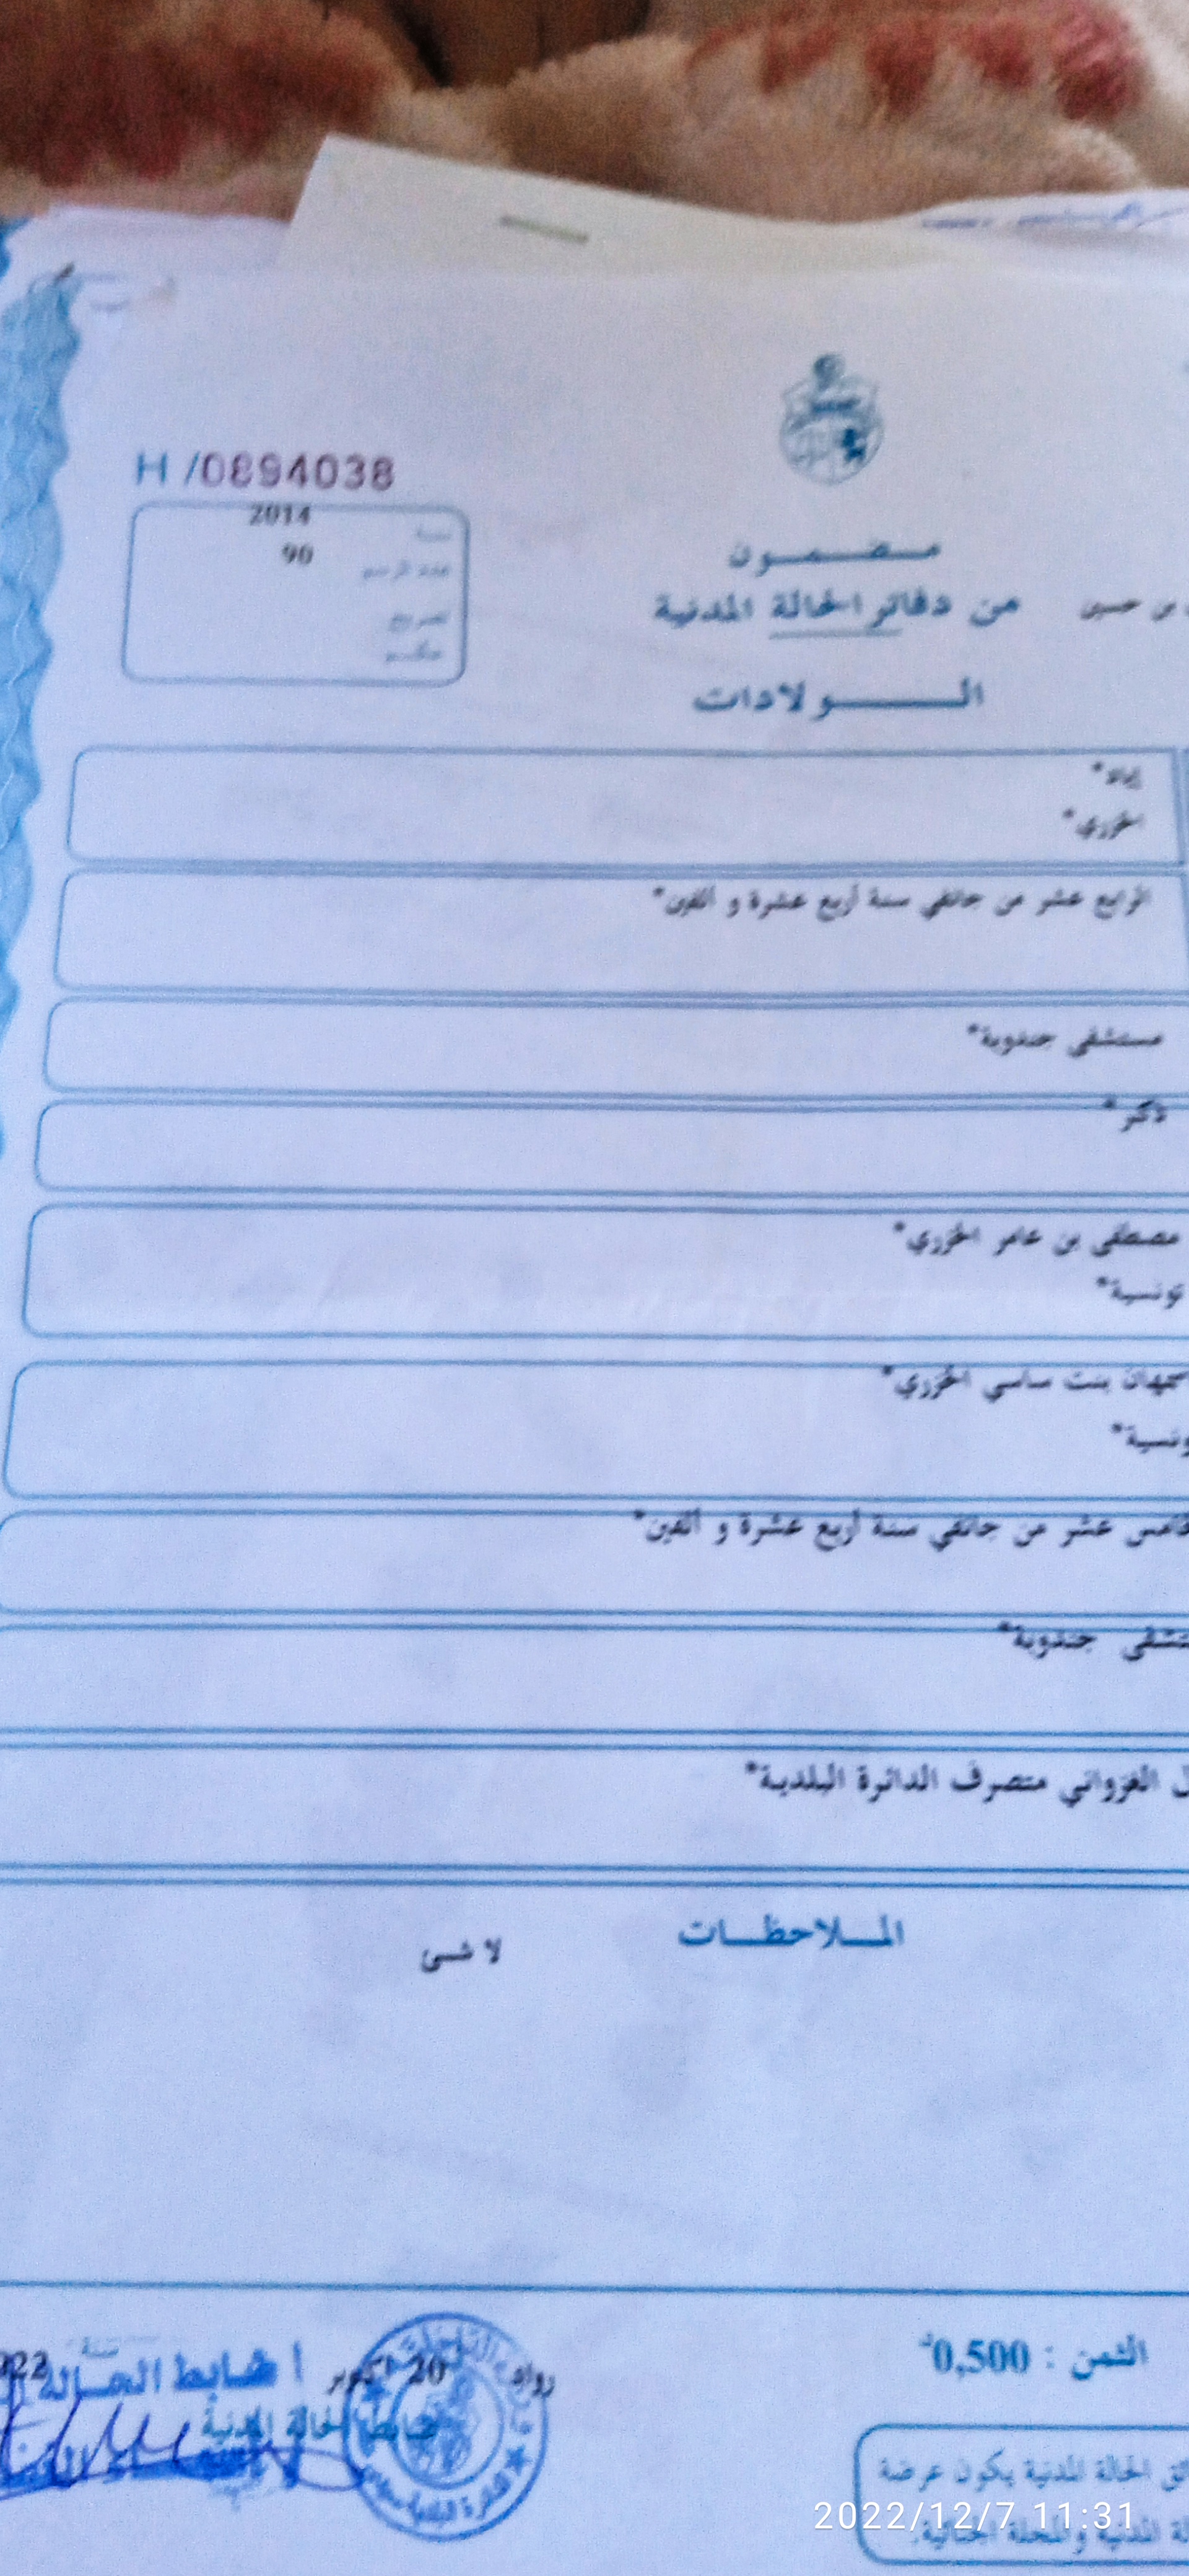 H /0894038
2014
سنة
90
عدد الرسم
تصريح
حكم
مضمون
من دفاتر الحالة المدنية
بن حسين
الولادات
إياد*
الخزري*
الرابع عشر من جانفي سنة أربع عشرة و ألفين*
مستشفى جندوبة*
ذكر*
مصطفى بن عامر الخزري*
تونسية*
جهان بنت ساسي الخزري*
ونسية*
خامس عشر من جانفي سنة أربع عشرة و ألفين*
تشفى جندوبة*
ل الغزواني متصرف الدائرة البلدية*
الملاحظات
لا شئ
الثمن : 0,500د
رواد 20 أكتوبر
سنة
022
ضابط الحالة
ضابط الحالة المدنية
ئق الحالة المدنية يكون عرضة
لة المدنية والمجلة الجنائية.
2022/12/7 11:31